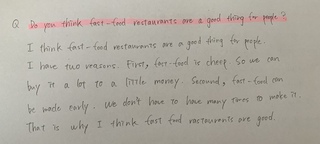 Q Do you think fast-food restaurants are a good thing for people?
I think fast-food restaurants are a good thing for people.
I have two reasons. First, fast-food is cheap. So we can
buy it a lot to a little money. Secound, fast-food can
be made early. We don't have to have many times to make it.
That is why I think fast food restaurants are good.